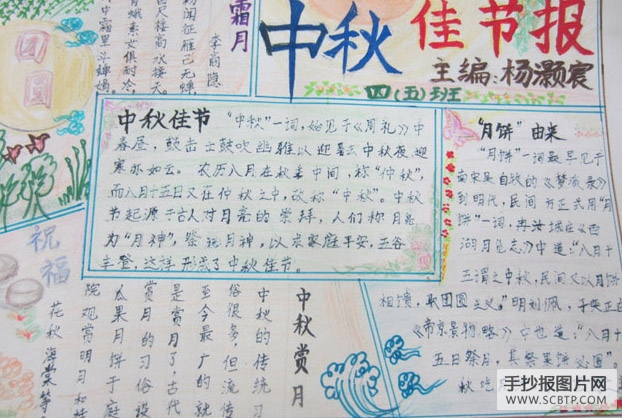 霜月
李商隐
初闻征雁已无蝉
百尺楼高水接天
青女素娥俱耐冷
月中霜里斗婵娟
团圆
中秋佳节报
主编:杨灏宸
四(五)班
中秋佳节
"中秋"一词,始见于《周礼》中
春昼,鼓击士鼓吹幽雅以迎暑云中秋夜迎
寒亦如云。农历八月在秋季中间,称"仲秋",
而八月十五日又在仲秋之中,故称"中秋"。中秋
节起源于古人对月亮的崇拜,人们称月亮
为"月神",祭祀月神,以求家庭平安,五谷
丰登,这样形成了中秋佳节。
"月饼"由来
"月饼"一词最早见于
南宋吴自牧的《梦粱录》
到明代,民间才正式用"月
饼"一词,
中道:"八月十
五谓之中秋,民间又以月饼
相馈,取团圆之义。"明刘侗、于奕正
《帝京景物略》中也道:"八月十
五日祭月,其祭果饼必圆"
祝福
中秋赏月
中秋的传统习
俗很多,但流传
至今最广的就
是赏月了,古代
赏月的习俗设
瓜果月饼于庭
院观赏明月和
花秋海棠等
手抄报图片网
WWW.SCBTP.COM